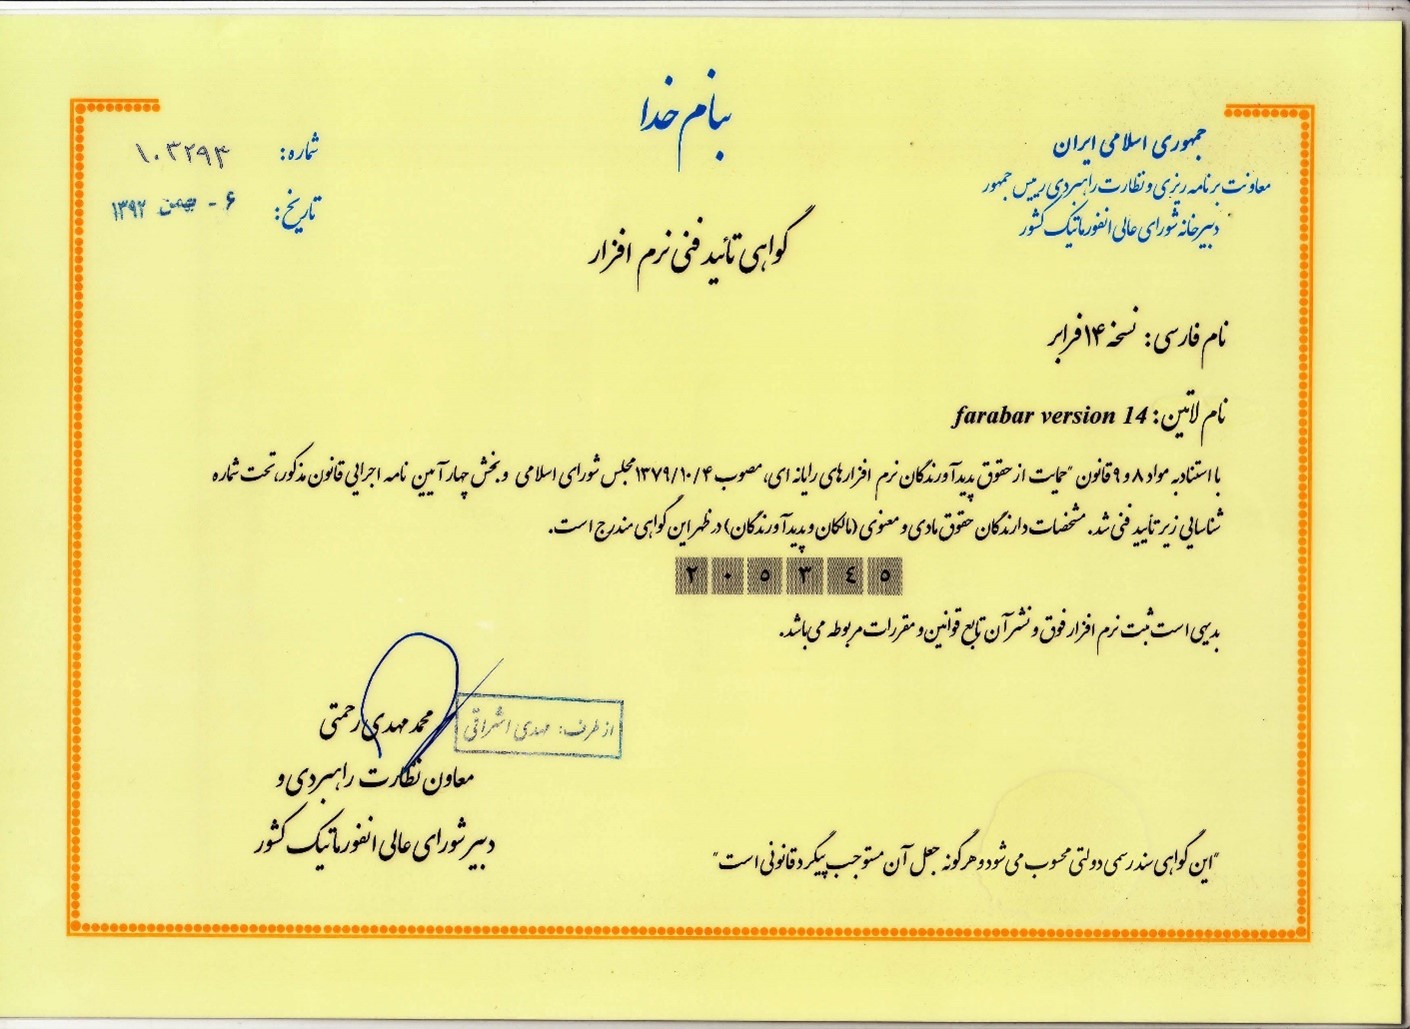 بنام خدا
جمهوری اسلامی ایران
معاونت برنامه ریزی و نظارت راهبردی رییس جمهور
دبیرخانه شورای عالی انفورماتیک کشور
شماره: ۱۰۳۲۹۴
تاریخ: ۶ - بهمن ۱۳۹۲
گواهی تائید فنی نرم افزار
نام فارسی: نسخه ۱۴ فرابر
نام لاتین: farabar version 14
با استناد به مواد ۸ و ۹ قانون "حمایت از حقوق پدیدآورندگان نرم افزارهای رایانه ای، مصوب ۱۳۷۹/۱۰/۴ مجلس شورای اسلامی و بخش چهار آیین نامه اجرایی قانون مذکور، تحت شماره
شناسایی زیر تأیید فنی شد. مشخصات دارندگان حقوق مادی و معنوی (مالکان و پدیدآورندگان) در ظهر این گواهی مندرج است.
۲۰۵۳٤۵
بدیهی است ثبت نرم افزار فوق و نشر آن تابع قوانین و مقررات مربوطه می باشد.
از طرف: مهدی اشراقی
محمد مهدی رحمتی
معاون نظارت راهبردی و
دبیر شورای عالی انفورماتیک کشور
"این گواهی سند رسمی دولتی محسوب می شود و هرگونه جعل آن مستوجب پیگرد قانونی است"